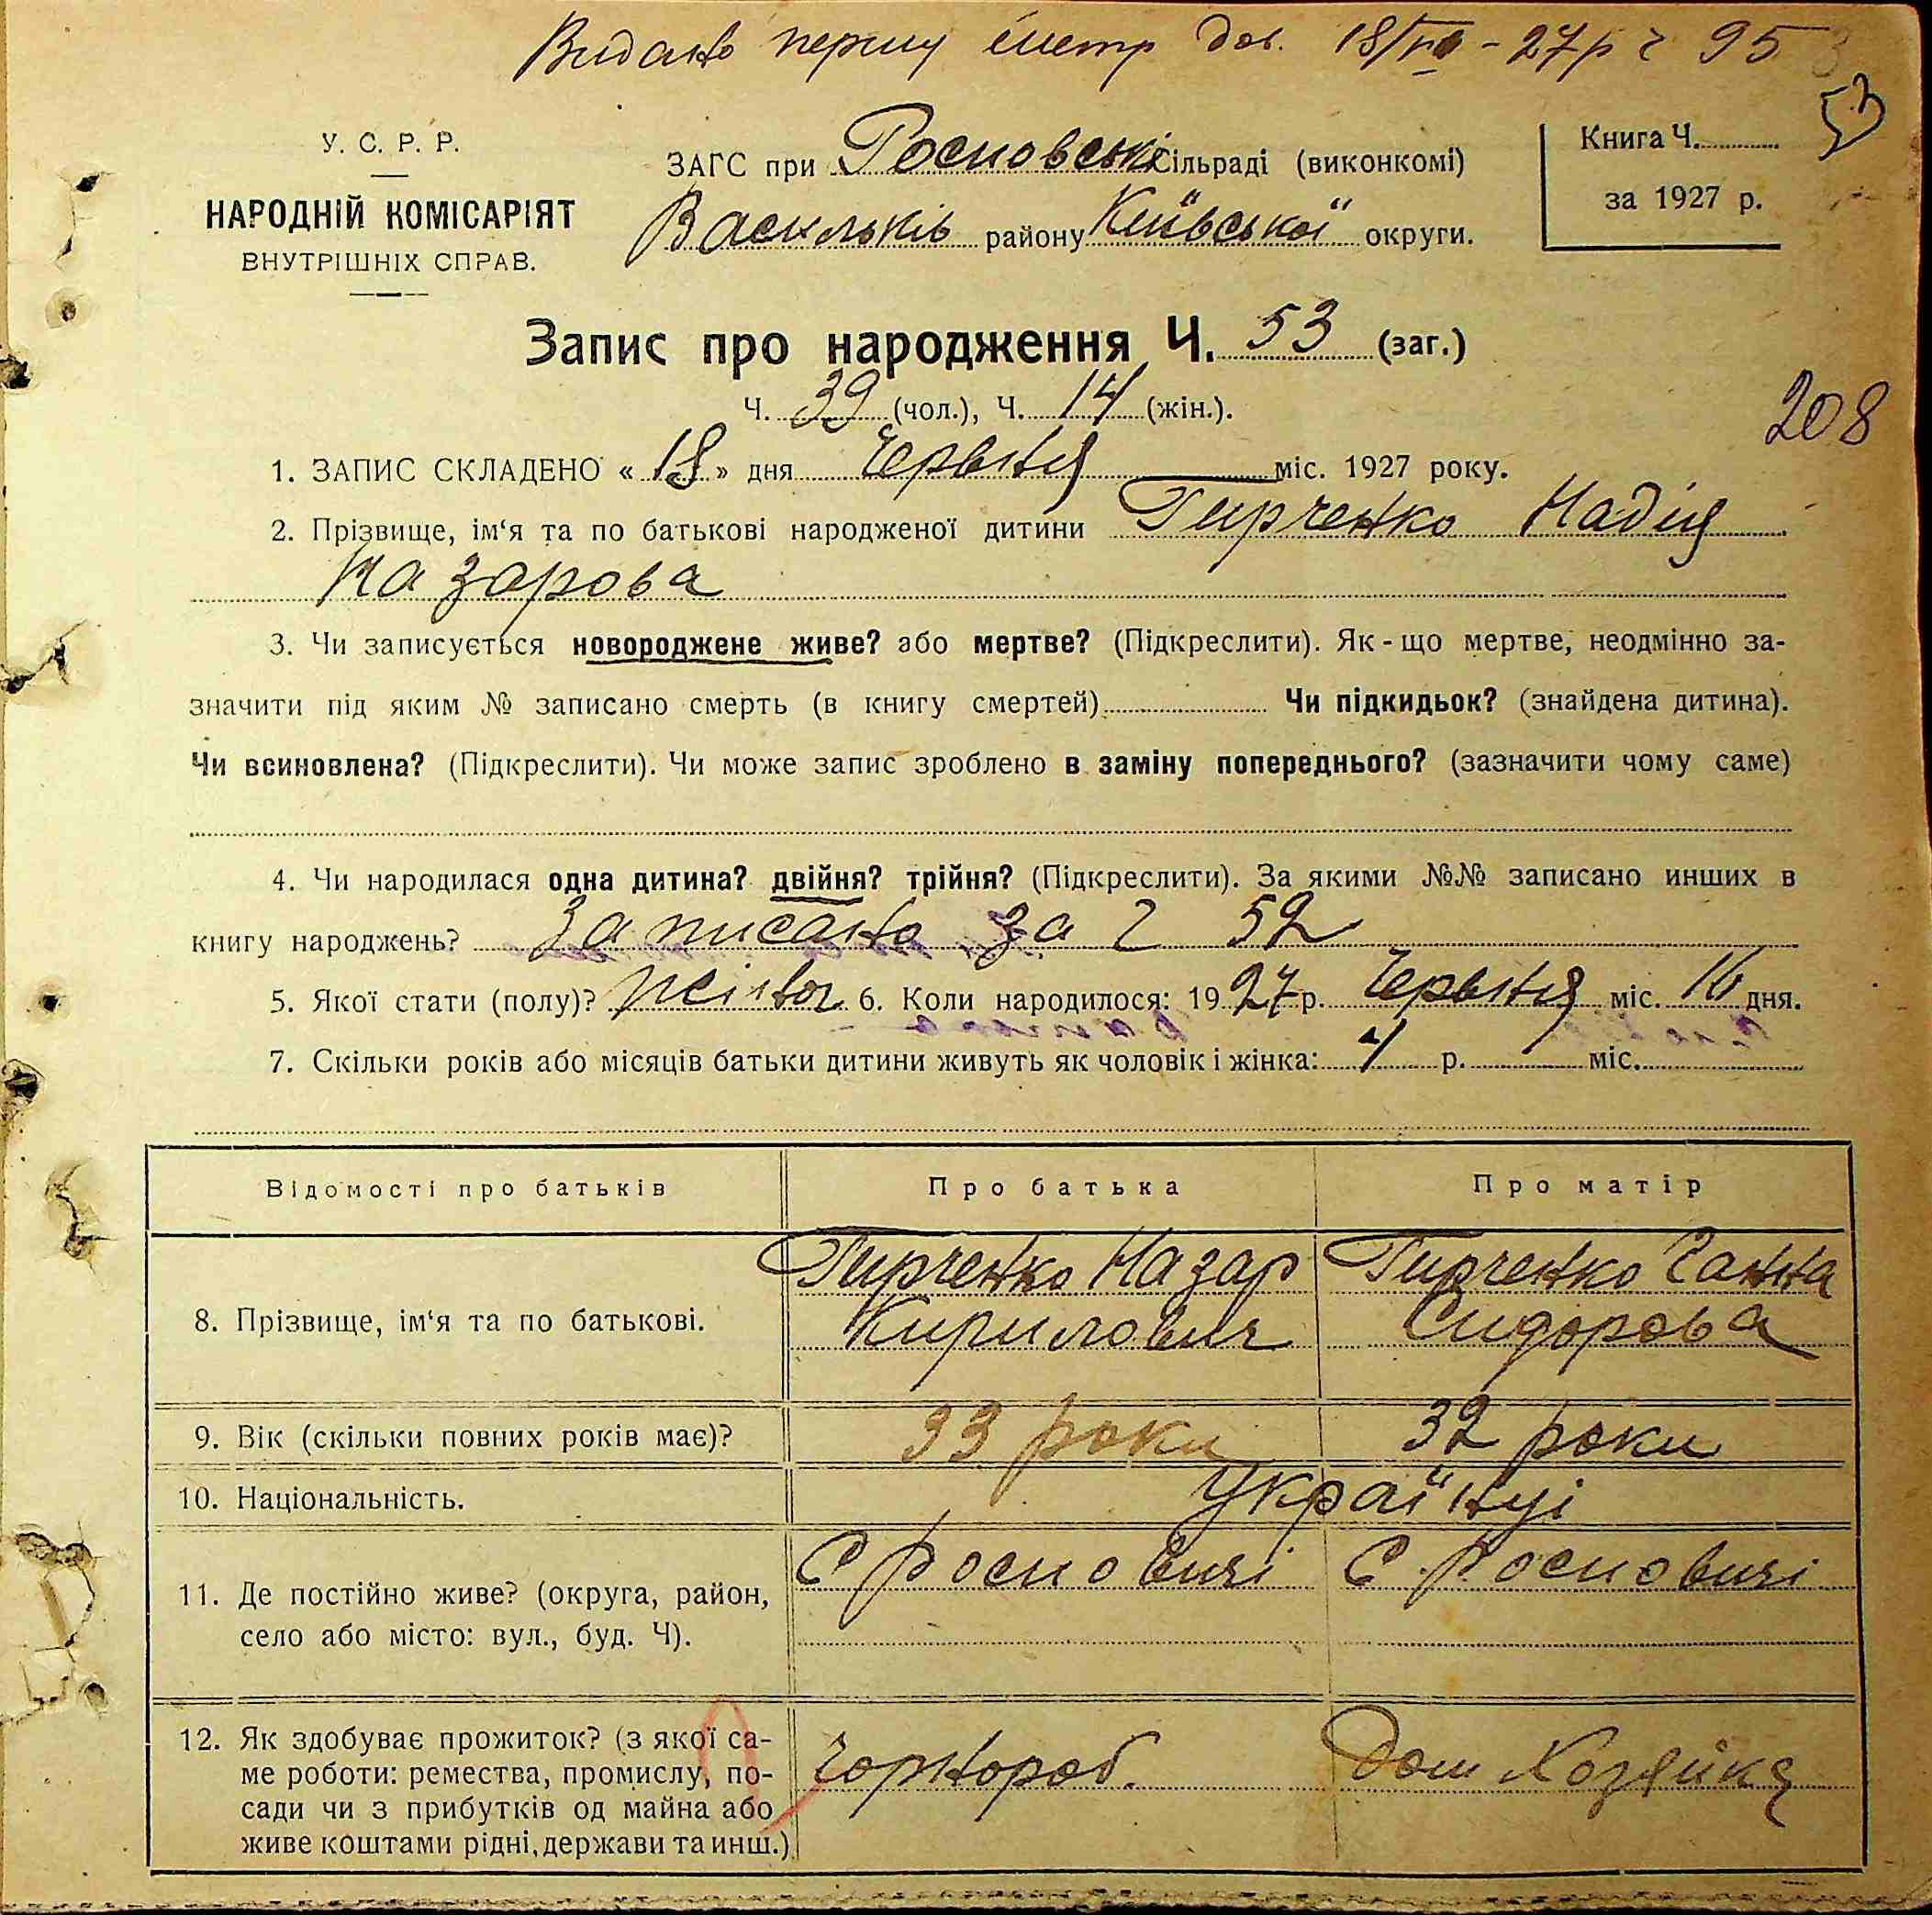 Видано першу метр дов. 18/VI - 27 р ч 95
53
У. С. Р. Р.
НАРОДНІЙ КОМІСАРІЯТ
ВНУТРІШНІХ СПРАВ.
ЗАГС при Росновські сільраді (виконкомі)
Васильків району Київської округи.
Книга Ч.
за 1927 р.
Запис про народження Ч. 53 (заг.)
Ч. 39 (чол.), Ч. 14 (жін.).
208
1. ЗАПИС СКЛАДЕНО « 18 » дня Червня міс. 1927 року.
2. Прізвище, ім‘я та по батькові народженої дитини Гирченко Надія
Назарова
3. Чи записується новороджене живе? або мертве? (Підкреслити). Як-що мертве, неодмінно за-
значити під яким № записано смерть (в книгу смертей) Чи підкидьок? (знайдена дитина).
Чи всиновлена? (Підкреслити). Чи може запис зроблено в заміну попереднього? (зазначити чому саме)
4. Чи народилася одна дитина? двійня? трійня? (Підкреслити). За якими №№ записано инших в
книгу народжень? Записано за ч 52
5. Якої стати (полу)? жіноч 6. Коли народилося: 1927 р. Червня міс. 16 дня.
7. Скільки років або місяців батьки дитини живуть як чоловік і жінка: 4 р. міс.
Відомості про батьків Про батька Про матір
8. Прізвище, ім‘я та по батькові.
Гирченко Назар Гирченко Ганна
Кирилович Сидорова
9. Вік (скільки повних років має)? 33 роки 32 роки
10. Національність. Українці
11. Де постійно живе? (округа, район,
село або місто: вул., буд. Ч).
С Росновичі С. Росновичі
12. Як здобуває прожиток? (з якої са-
ме роботи: ремества, промислу, по-
сади чи з прибутків од майна або
живе коштами рідні, держави та инш.)
чорнороб. Дом Хозяйка